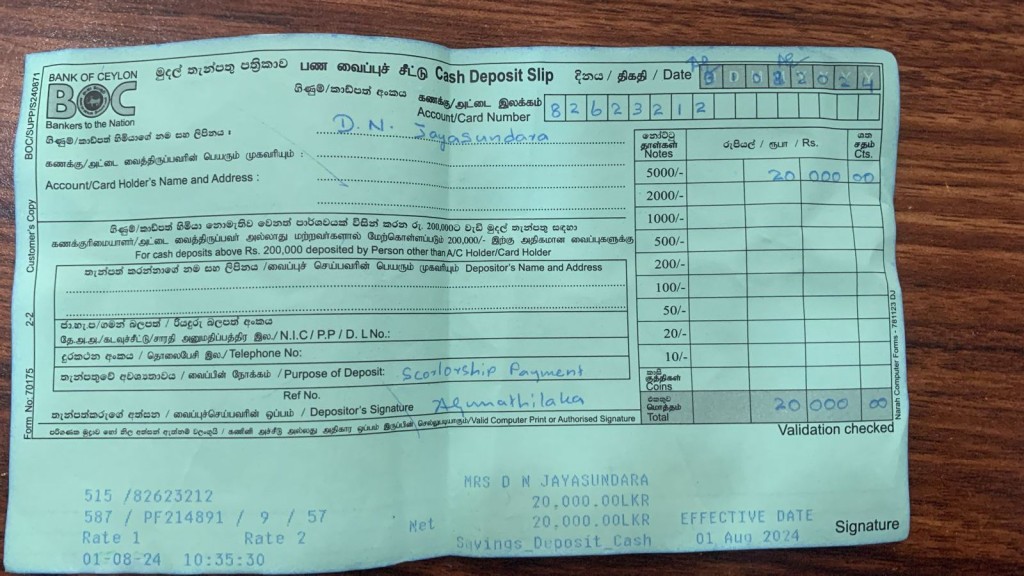 BOC/SUPP/S240671
Customer's Copy
2-2
Form No: 70175
BANK OF CEYLON
BOC
Bankers to the Nation
මුදල් තැන්පතු පත්‍රිකාව பண வைப்புச் சீட்டு Cash Deposit Slip
දිනය / திகதி / Date 2024
ගිණුම්/කාඩ්පත් අංකය கணக்கு/அட்டை இலக்கம் Account/Card Number 82623212
ගිණුම්/කාඩ්පත් හිමියාගේ නම සහ ලිපිනය :
D. N. Jayasundara
கணக்கு/அட்டை வைத்திருப்பவரின் பெயரும் முகவரியும் :
Account/Card Holder's Name and Address :
ගිණුම්/කාඩ්පත් හිමියා නොමැතිව වෙනත් පාර්ශවයක් විසින් කරන රු. 200,000ට වැඩි මුදල් තැන්පතු සඳහා
கணக்குரிமையாளர்/அட்டை வைத்திருப்பவர் அல்லாது மற்றவர்களால் மேற்கொள்ளப்படும் 200,000/- இற்கு அதிகமான வைப்புகளுக்கு
For cash deposits above Rs. 200,000 deposited by Person other than A/C Holder/Card Holder
තැන්පත් කරන්නාගේ නම සහ ලිපිනය /வைப்புச் செய்பவரின் பெயரும் முகவரியும் Depositor's Name and Address
ජා.හැ.ප/ගමන් බලපත්‍ර / රියදුරු බලපත්‍ර අංකය
தே.அ.அ/கடவுச்சீட்டு/சாரதி அனுமதிப்பத்திர இல./ N.I.C/ P.P / D. L No.:
දුරකථන අංකය / தொலைபேசி இல./ Telephone No:
තැන්පතුවේ අවශ්‍යතාවය / வைப்பின் நோக்கம் / Purpose of Deposit: Scorlorship Payment
Ref No.
තැන්පත්කරුගේ අත්සන / வைப்புச்செய்பவரின் ஒப்பம் / Depositor's Signature
/Valid Computer Print or Authorised Signature
නෝට්ටු தாள்கள் Notes රුපියල් / ரூபா / Rs. ශත சதம் Cts.
5000/- 20 000 00
2000/-
1000/-
500/-
200/-
100/-
50/-
20/-
10/-
කාසි குத்திகள் Coins
එකතුව மொத்தம் Total 20 000 00
Narah Computer Forms - 781123 DJ
Validation checked
515 /82623212
587 / PF214891 / 9 / 57
Rate 1 Rate 2
01-08-24 10:35:30
MRS D N JAYASUNDARA
20,000.00LKR
Net 20,000.00LKR
Savings_Deposit_Cash
EFFECTIVE DATE
01 Aug 2024
Signature